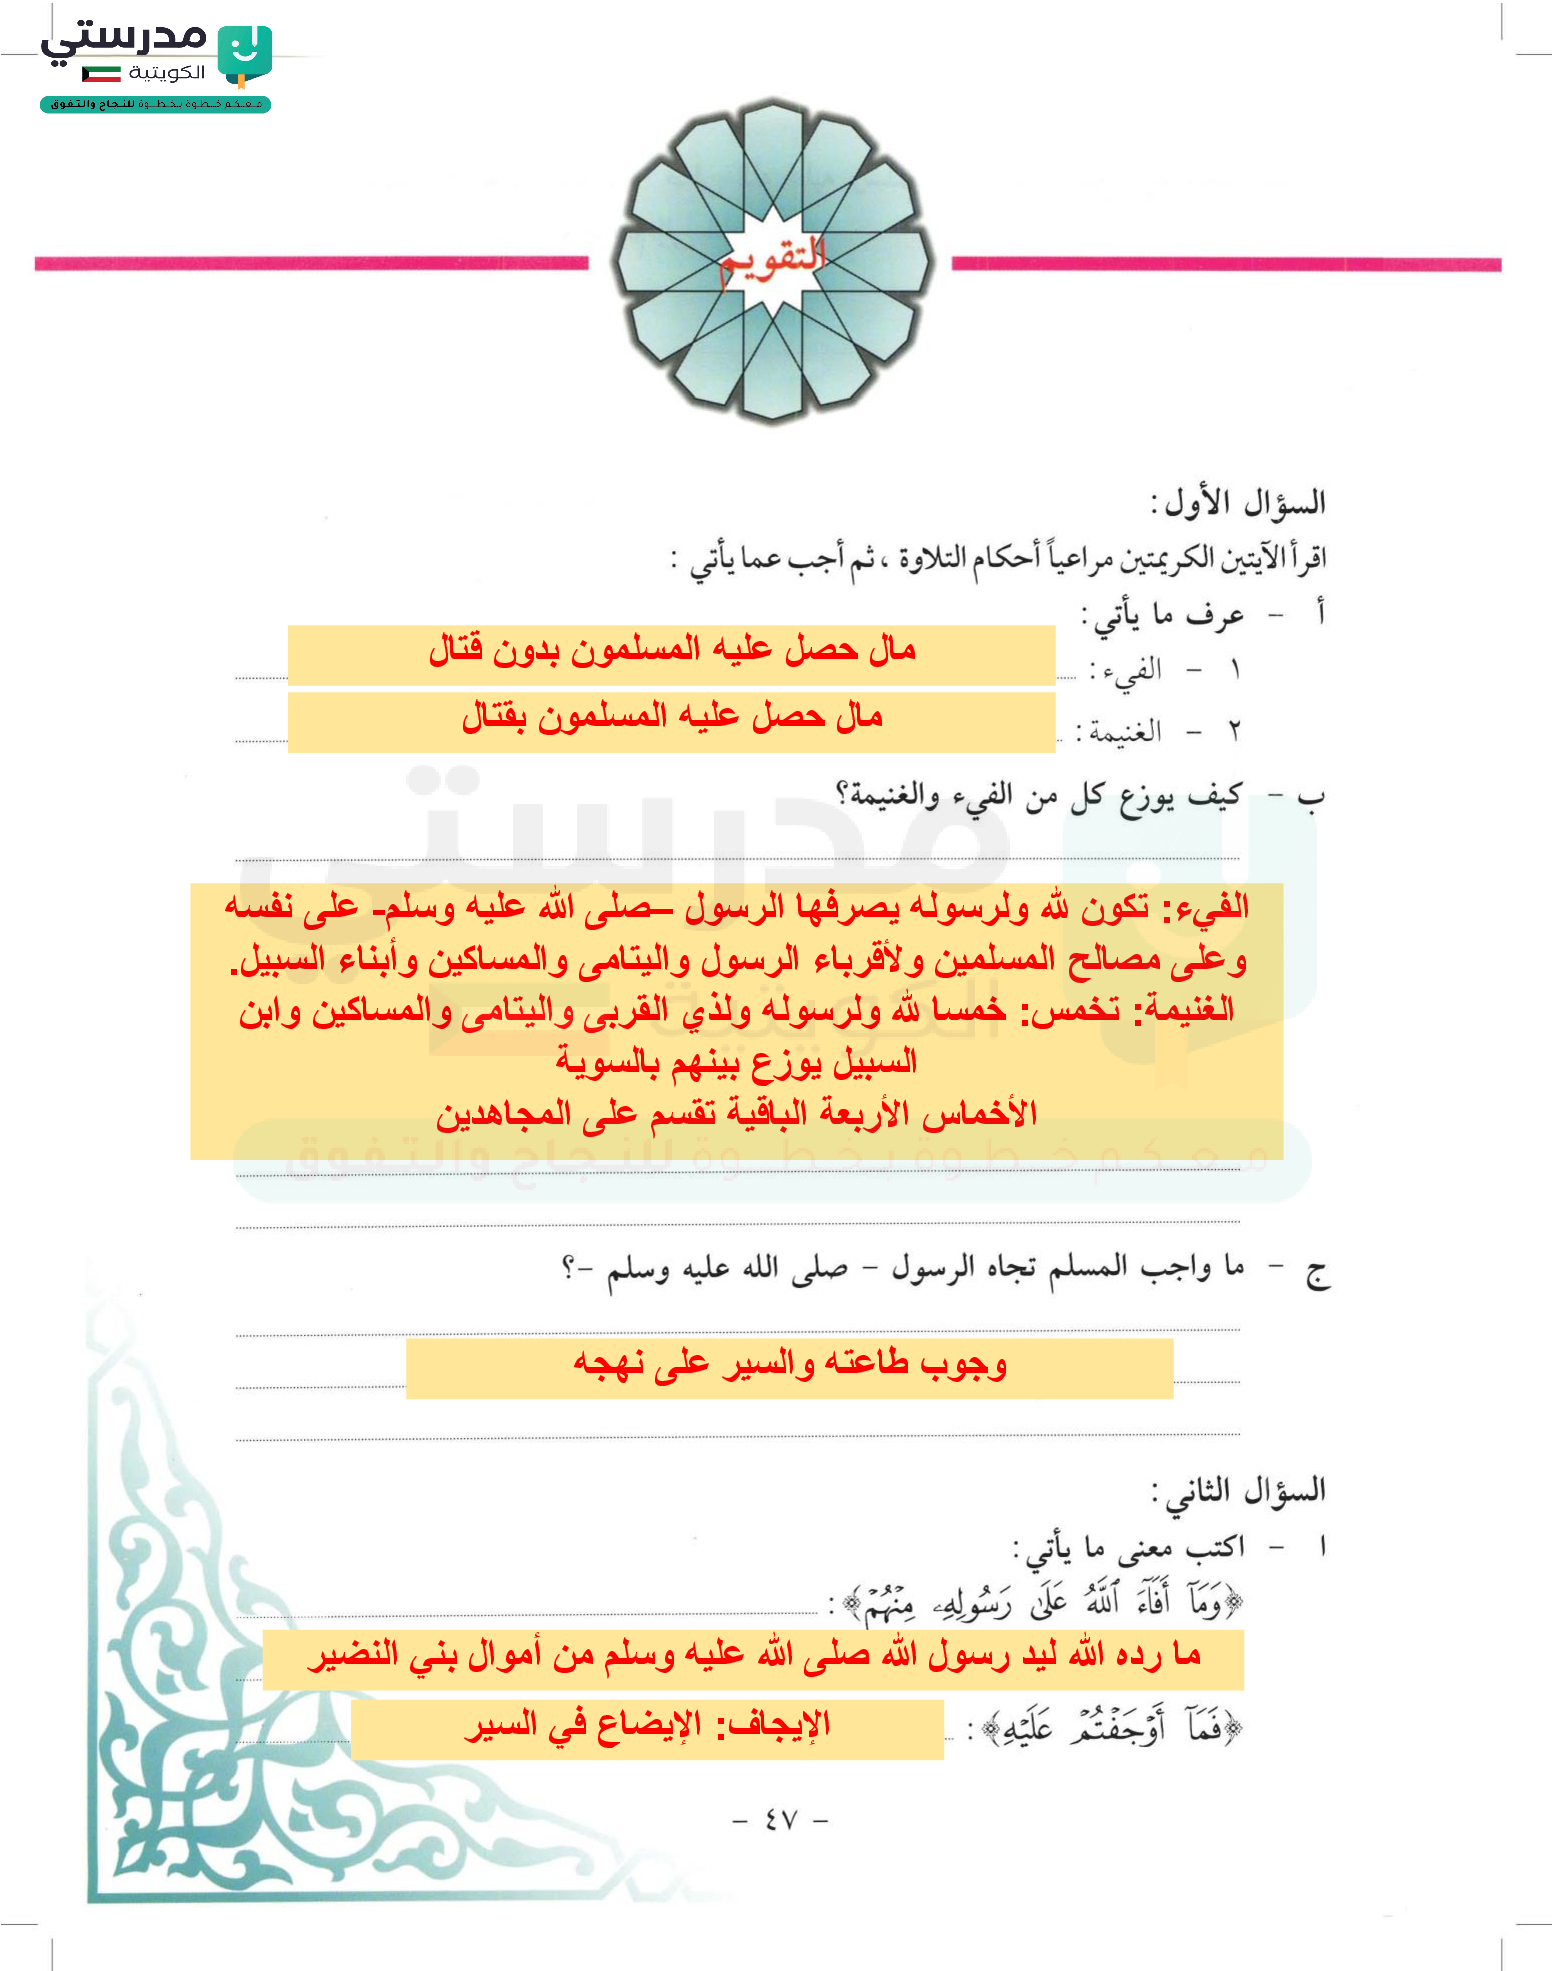 مدرستي
الكويتية
معكم خطوة بخطوة للنجاح والتفوق
التقويم
السؤال الأول:
اقرأ الآيتين الكريمتين مراعياً أحكام التلاوة ، ثم أجب عما يأتي :
أ - عرف ما يأتي:
١ - الفيء: مال حصل عليه المسلمون بدون قتال
٢ - الغنيمة: مال حصل عليه المسلمون بقتال
ب - كيف يوزع كل من الفيء والغنيمة؟
الفيء: تكون لله ولرسوله يصرفها الرسول –صلى الله عليه وسلم- على نفسه
وعلى مصالح المسلمين ولأقرباء الرسول واليتامى والمساكين وأبناء السبيل.
الغنيمة: تخمس: خمسا لله ولرسوله ولذي القربى واليتامى والمساكين وابن
السبيل يوزع بينهم بالسوية
الأخماس الأربعة الباقية تقسم على المجاهدين
مدرستي
الكويتية
معكم خطوة بخطوة للنجاح والتفوق
ج - ما واجب المسلم تجاه الرسول - صلى الله عليه وسلم -؟
وجوب طاعته والسير على نهجه
السؤال الثاني:
ا - اكتب معنى ما يأتي:
﴿وَمَآ أَفَآءَ ٱللَّهُ عَلَىٰ رَسُولِهِۦ مِنْهُمْ﴾:
ما رده الله ليد رسول الله صلى الله عليه وسلم من أموال بني النضير
﴿فَمَآ أَوْجَفْتُمْ عَلَيْهِ﴾: الإيجاف: الإيضاع في السير
- ٤٧ -